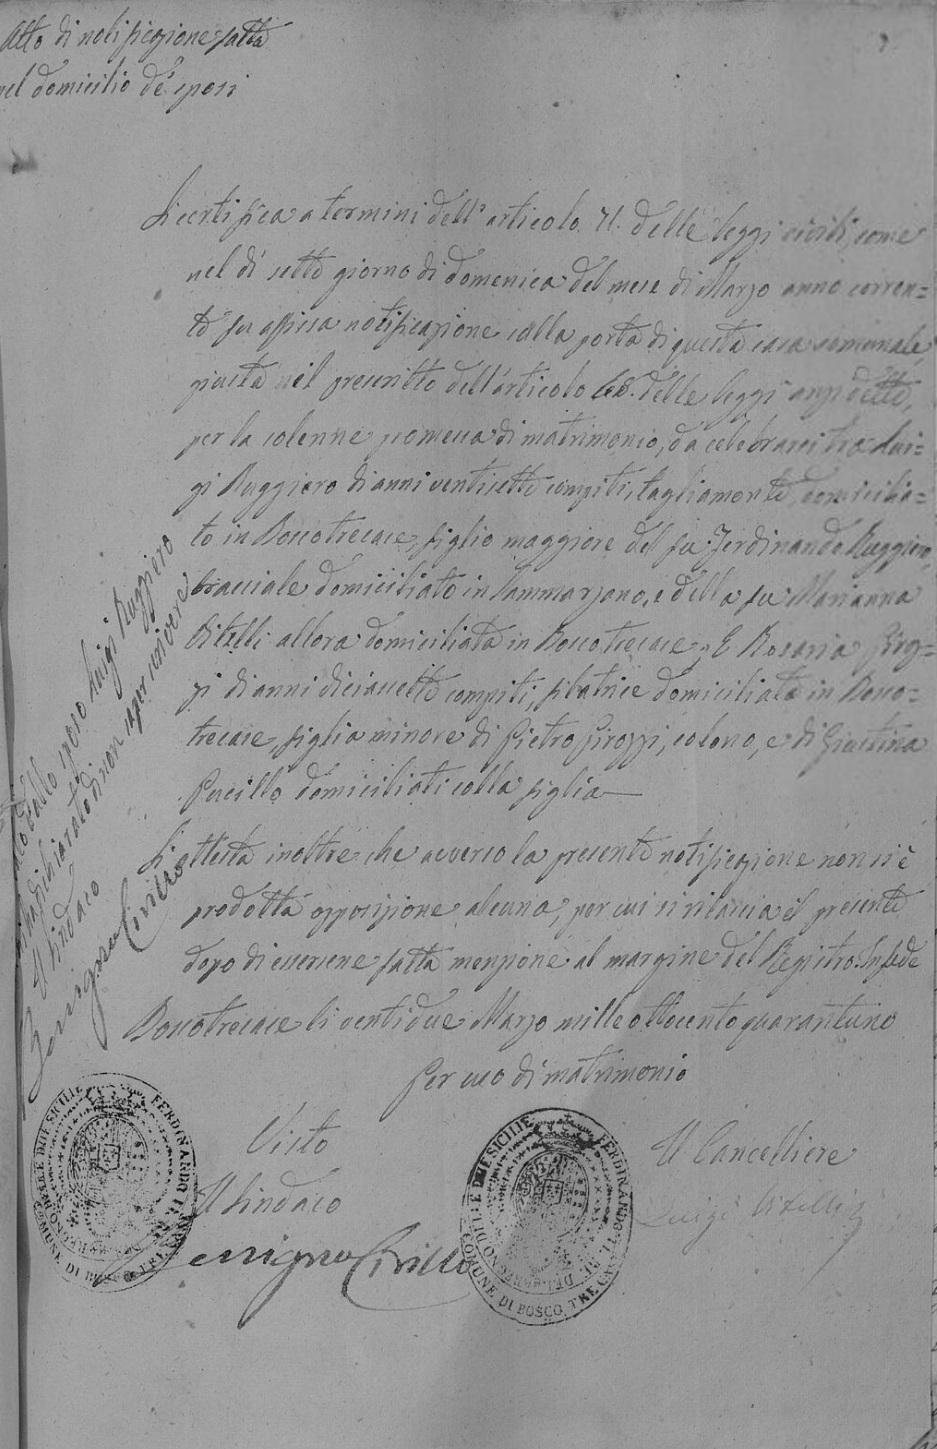 Atto di notificazione fatta
nel domicilio de' sposi
Si certifica a termini dell' articolo 71. delle leggi civili, come
nel dì sette giorno di domenica del mese di Marzo anno corren=
te fu affissa notificazione sulla porta di questa casa comunale,
giusta nel prescritto dell'articolo 68. delle leggi anzidette,
per la solenne promessa di matrimonio, da celebrarsi tra Lui=
gi Ruggiero di anni ventisette compiti, tagliamonte, domicilia=
to in Boscotrecase, figlio maggiore del fu Ferdinando Ruggiero,
bracciale domiciliato in Sammarzano, e della fu Marianna
Vitelli allora domiciliata in Boscotrecase; E Rosaria
di anni diciassette compiti, filatrice domiciliata in Bosco=
trecase, figlia minore di Pietro Girozzi, colono, e di Giustina
Pucillo domiciliati colla figlia
Si attesta inoltre che avverso la presente notificazione non si è
prodotta opposizione alcuna, per cui si rilascia il presente
dopo di essersene fatta menzione al margine del Registro. In fede
Boscotrecase li ventidue Marzo mille ottocento quarantuno
Per uso di matrimonio
Visto
Il Sindaco
Benigno Cirillo
Il Cancelliere
Luigi Vitelli
dallo sposo Luigi Ruggiero
ha dichiarato di non saper scrivere
Il Sindaco
Benigno Cirillo
FERDINANDO II.
REGNO DELLE DUE SICILIE
COMUNE DI BOSCO TRE CASE
FERDINANDO II.
REGNO DELLE DUE SICILIE
COMUNE DI BOSCO TRE CASE